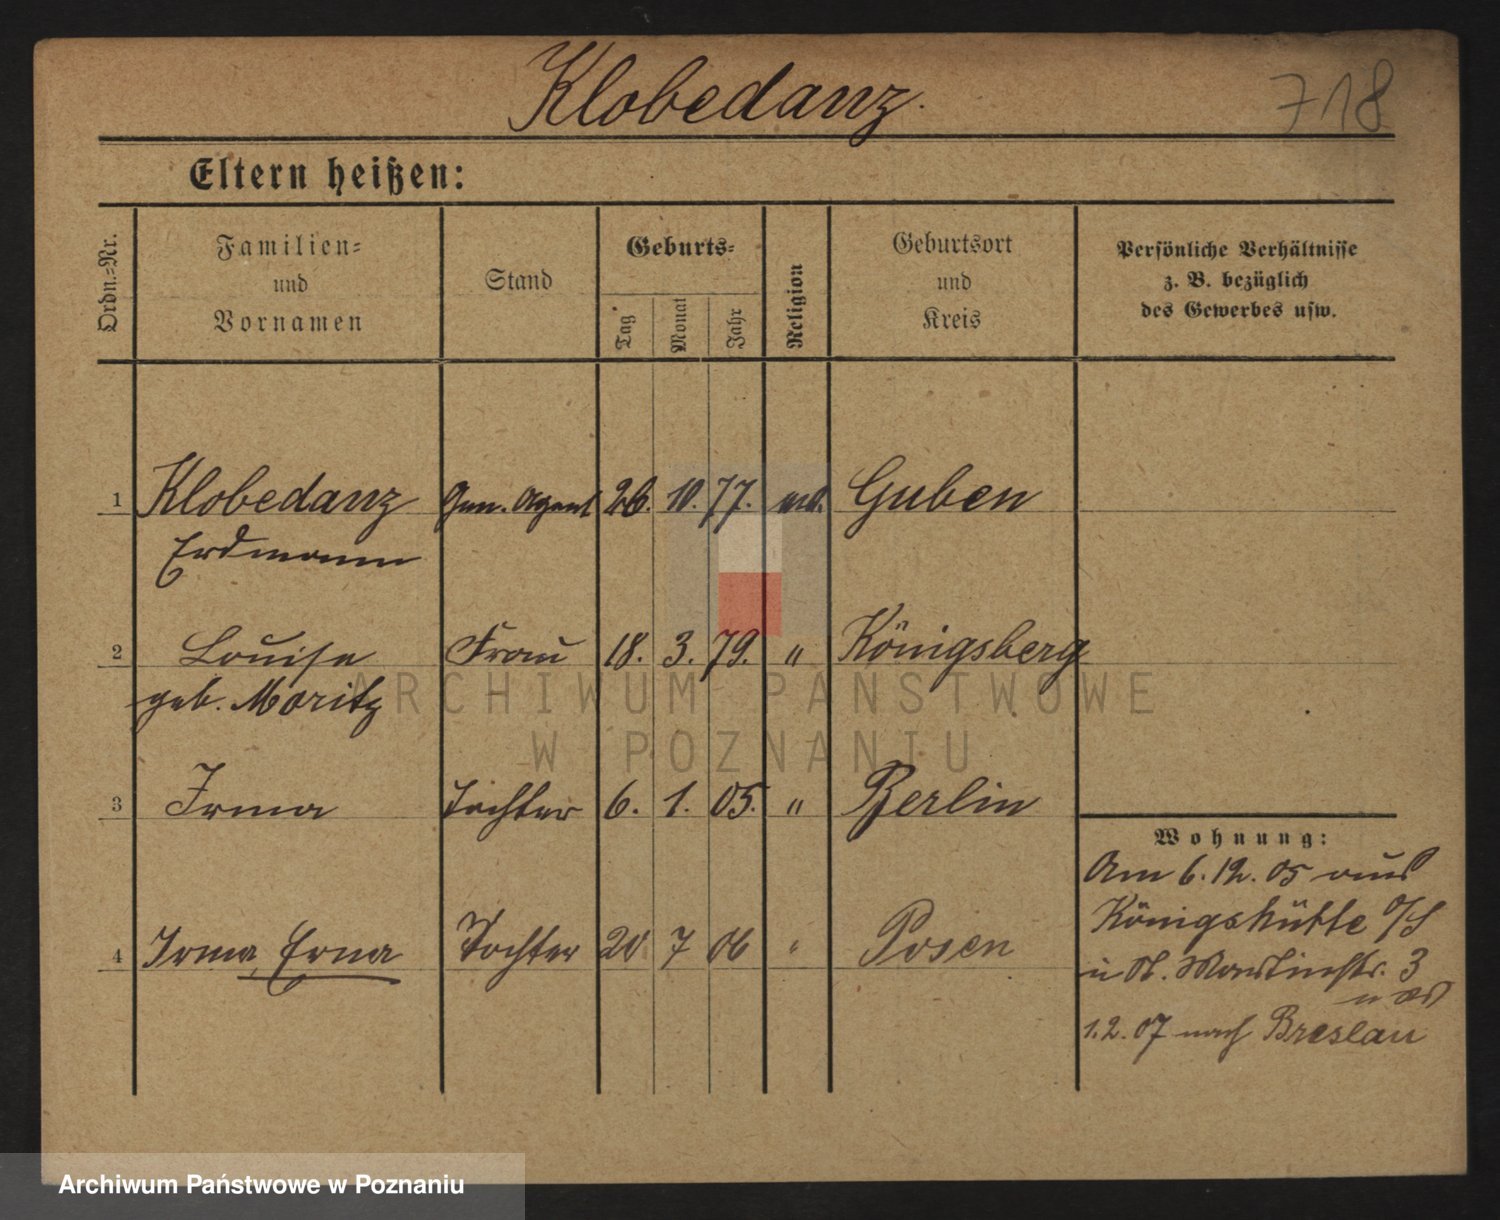 Klobedanz.
718
Eltern heißen:
Ordn.=Nr.
Familien=
und
Vornamen
Stand
Geburts=
Tag
Monat
Jahr
Religion
Geburtsort
und
Kreis
Persönliche Verhältnisse
z. B. bezüglich
des Gewerbes usw.
1 Klobedanz Gen. Agent 26. 10. 77. Guben
Erdmann
2 Louise Frau 18. 3. 79. " Königsberg
geb. Moritz
ARCHIWUM PAŃSTWOWE
W POZNANIU
3 Irma Tochter 6. 1. 05. " Berlin
4 Irma, Erna Tochter 20 7 06 " Posen
Wohnung:
Am 6. 12. 05 aus
Königshütte O/S
n St. Martinstr. 3
1. 2. 07 nach Breslau
Archiwum Państwowe w Poznaniu